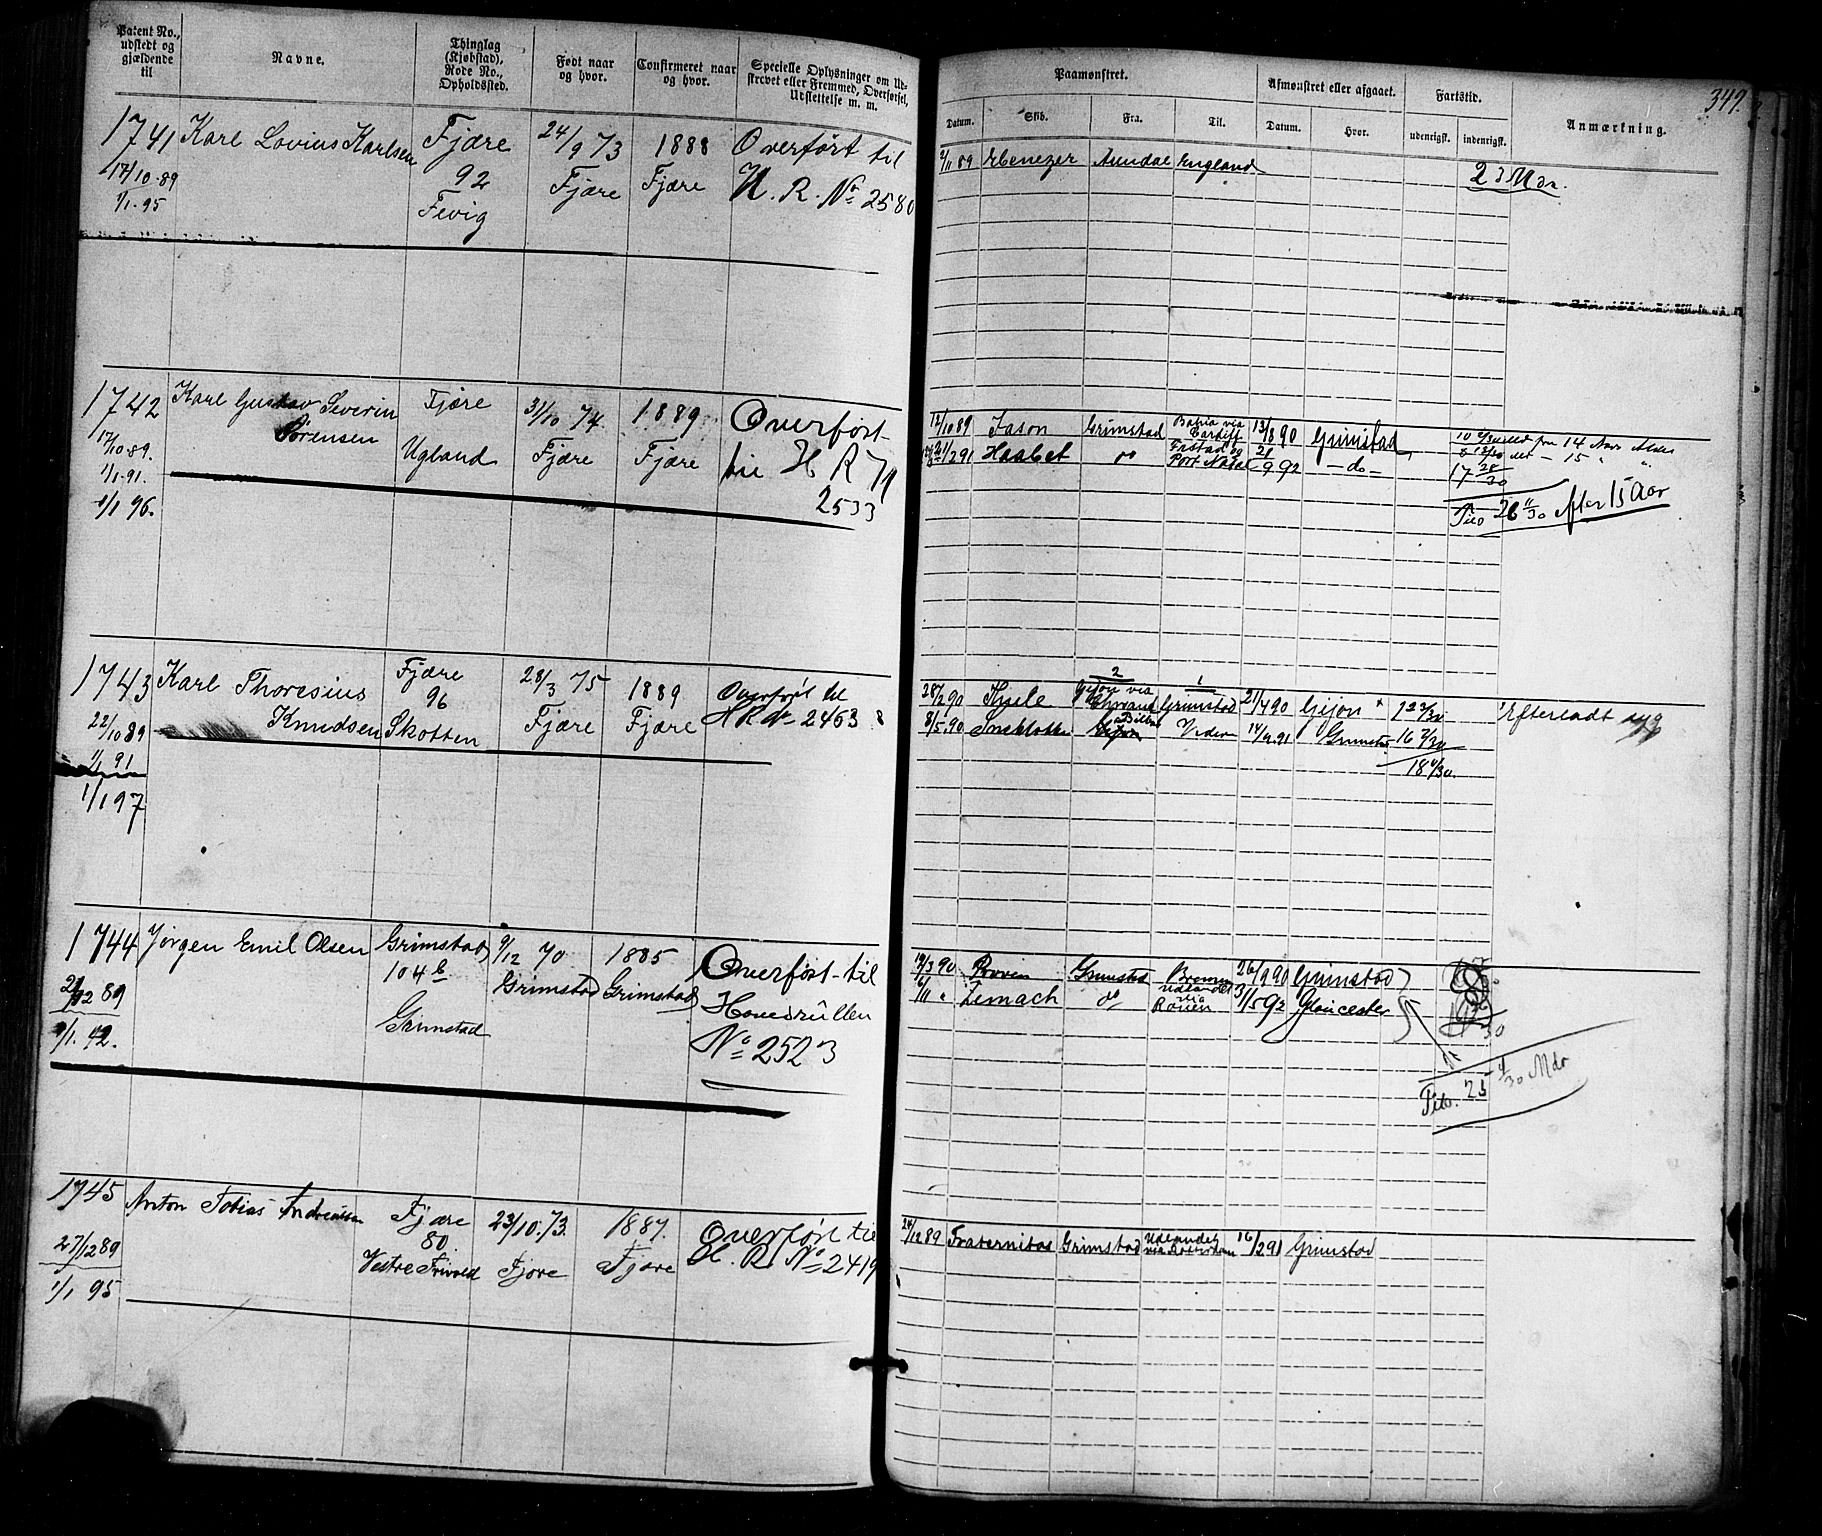 Patent No., udstedt og gjældende til
Navne.
Thinglag (Kjøbstad), Rode No., Opholdssted.
Født naar og hvor.
Confirmeret naar og hvor.
Specielle Oplysninger om Udskrevet eller Fremmed, Overførsel, Udslettelse m. m.
Paamønstret.
Datum.
Skib.
Fra.
Til.
Afmønstret eller afgaaet.
Datum.
Hvor.
Fartstid.
udenrigsk.
indenrigsk.
Anmærkning.
349.
1741 Karl Lovius Karlsen Fjære 24/9 73 1888 Overført til
17/10 89 92 Fjære Fjære H. R. No 2580
1/1. 95 Fevig
2/11 89 Ebenezer Arendal England 23 Mdr.
1742 Karl Gustav Severin Fjære 31/10 74. 1889 Overført
Sørensen
17/10 89. Ugland Fjære Fjære til H R No
1/1. 91. 2533
1/1 96.
17/10 89 Jason Grimstad Bahia via Cardiff 13/8 90 Grimstad
Haabet do Port Natal 21/9 92 – do –
17 28/30
Tilo 26 11/30 efter 15 Aar
1743 Karl Thoresius Fjære 28/3 75 1889 Overført til
Knudsen 96 Fjære Fjære H R No 2463
22/10 89 Skotten
1/1 91
1/1 97
28/2 90 Grimstad 21/4 90 Gijon
8/5. 90 14/9. 91 Grimstad 16
18
Efterladt syg
1744 Jørgen Emil Olsen Grimstad 9/12 70 1885 Overført til
104 b Grimstad Grimstad Hovedrullen
Grimstad No 2523
19/3 90 Grimstad Bremen 26/9 90 Grimstad
6/11 " Zemach do udlandet via Rouen 31/5 92 Gloucester
Tilo. 25 4/30 Mdr
1745 Anton Tobias Andreassen Fjære 23/10. 73. 1887. Overført til
80.
27/12 89 Vestre Frivold Fjære Fjære H. R. No 2419
1/1 95
24/12 89 Fraternitas Grimstad Udlandet via Rotterdam 16/2 91 Grimstad